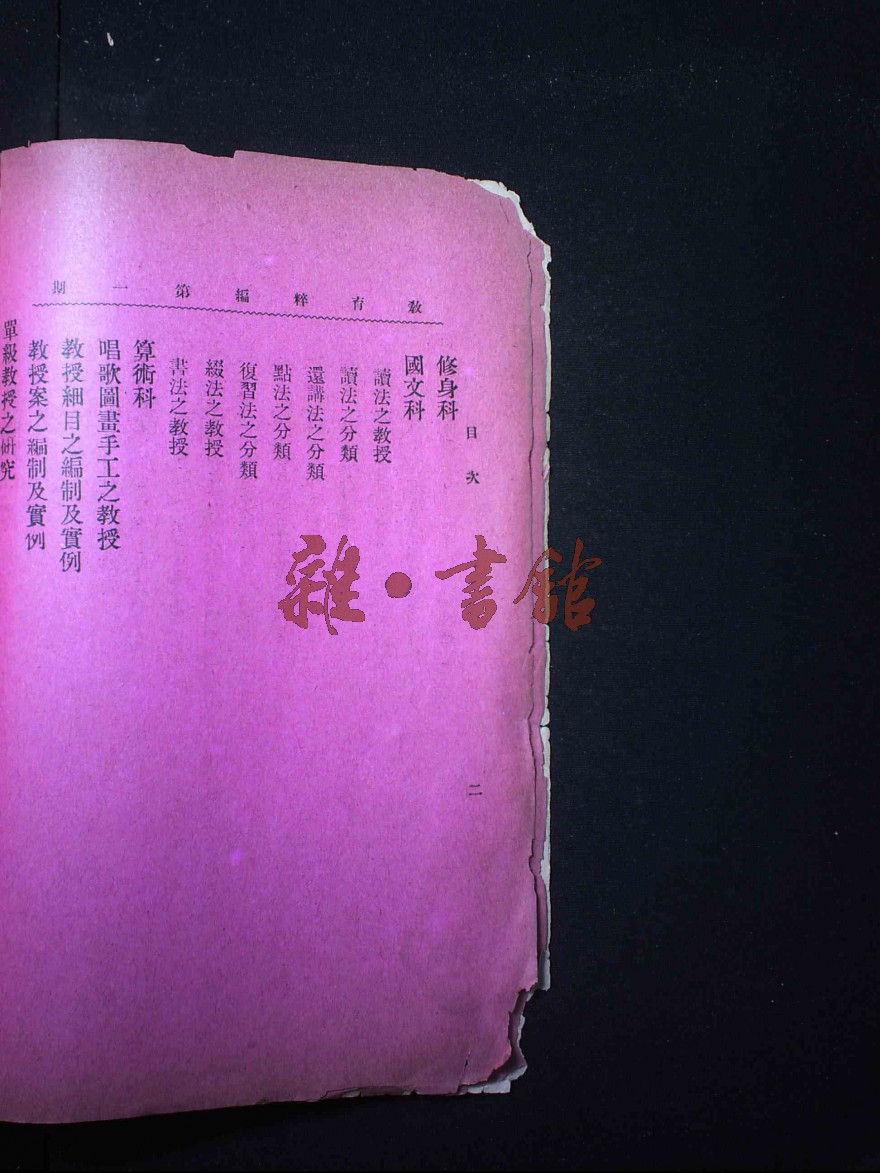 教育粹編第一期
目次
二
修身科
國文科
讀法之教授
讀法之分類
還講法之分類
點法之分類
復習法之分類
綴法之教授
書法之教授
算術科
唱歌圖畫手工之教授
教授細目之編制及實例
教授案之編制及實例
單級教授之研究
雜·書館